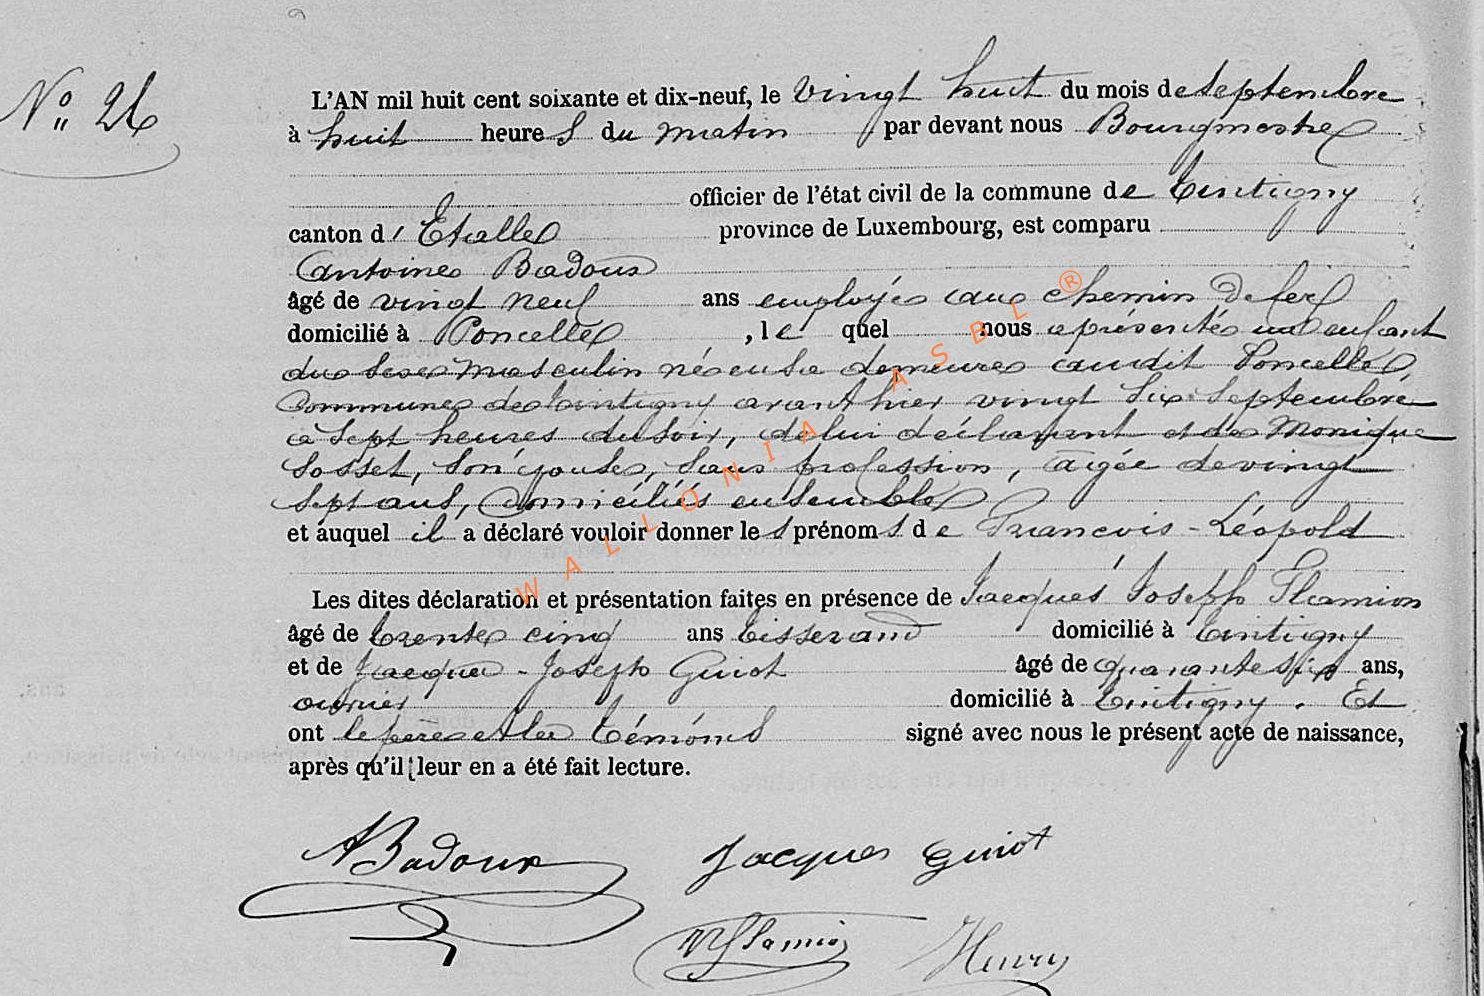 N° 26
L'AN mil huit cent soixante et dix-neuf, le vingt huit du mois de Septembre
à huit heures du matin par devant nous Bourgmestre
officier de l'état civil de la commune de Tintigny
canton d'Etalle province de Luxembourg, est comparu
Antoine Badoux
âgé de vingt neuf ans employé au chemin de fer
domicilié à Poncelle, le quel nous a présenté un enfant
du sexe masculin né en sa demeure audit Poncelle,
Commune de Tintigny avant hier vingt six Septembre
à sept heures du soir, de lui déclarant et de Monique
Sosset, son épouse, sans profession, agée de vingt
sept ans, domiciliés ensemble
et auquel il a déclaré vouloir donner les prénoms de Francois-Léopold
Les dites déclaration et présentation faites en présence de Jacques Joseph Flamion
âgé de trente cinq ans tisserand domicilié à Tintigny
et de Jacques-Joseph Guiot âgé de quarante six ans,
ouvrier domicilié à Tintigny. Et
ont le père et les témoins signé avec nous le présent acte de naissance,
après qu'il leur en a été fait lecture.
ABadoux Jacques Guiot
Flamion Henry
WALLONIA ASBL ®